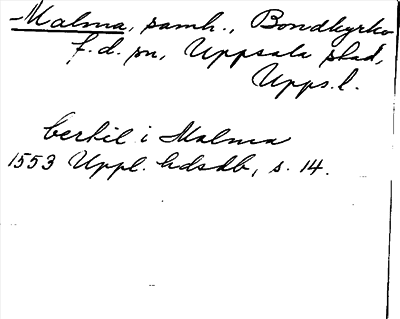 -Malma, samh., Bondkyrko
f.d. sn, Uppsala stad,
Upps.l.
bertil i Malma
1553 Uppl. hdsdb, s. 14.